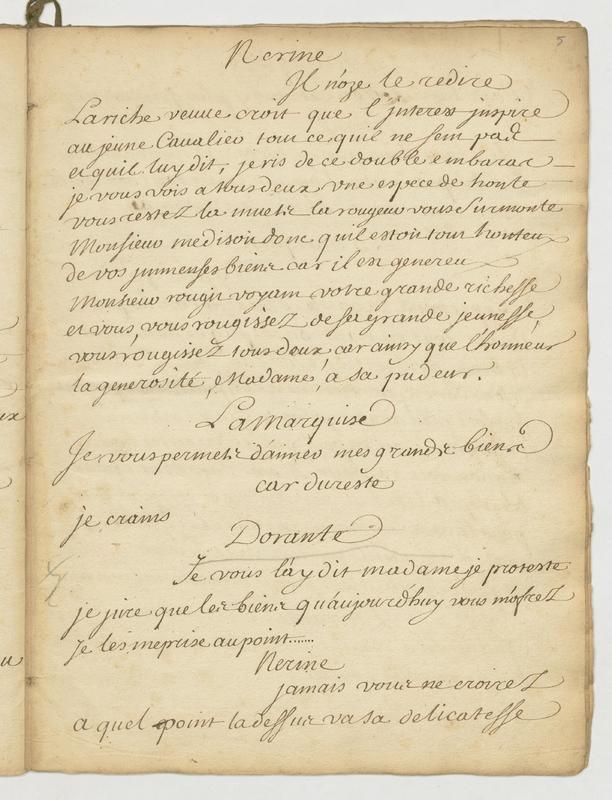 5
Nerine
Il n'oze le redire
La riche veuue croit que l'interest inspire
au jeune Caualier tout ce quil ne sent pas
et quil luy dit, je ris de ce double embarac
je vous vois a tous deux vne espece de honte
vous restez la muets la rougeur vous surmonte
Monsieur medisoit donc quil estoit tout honteux
de vos immenses biens car il est genereux
Monsieur rougit voyant votre grande richesse
et vous, vous rougissez de sa grande jeunesse,
vous rougissez tous deux, car ainsy que l'honneur
la generosité, Madame, a sa pudeur.
La Marquise
Je vous permets d'aimer mes grands biens
car du reste
je crains
Dorante
Je vous l'ay dit madame je proteste
je jure que les biens qu'aujourd'huy vous m'ofrez
Je les meprise au point......
Nerine
jamais vous ne croirez
a quel point la dessus va sa delicatesse